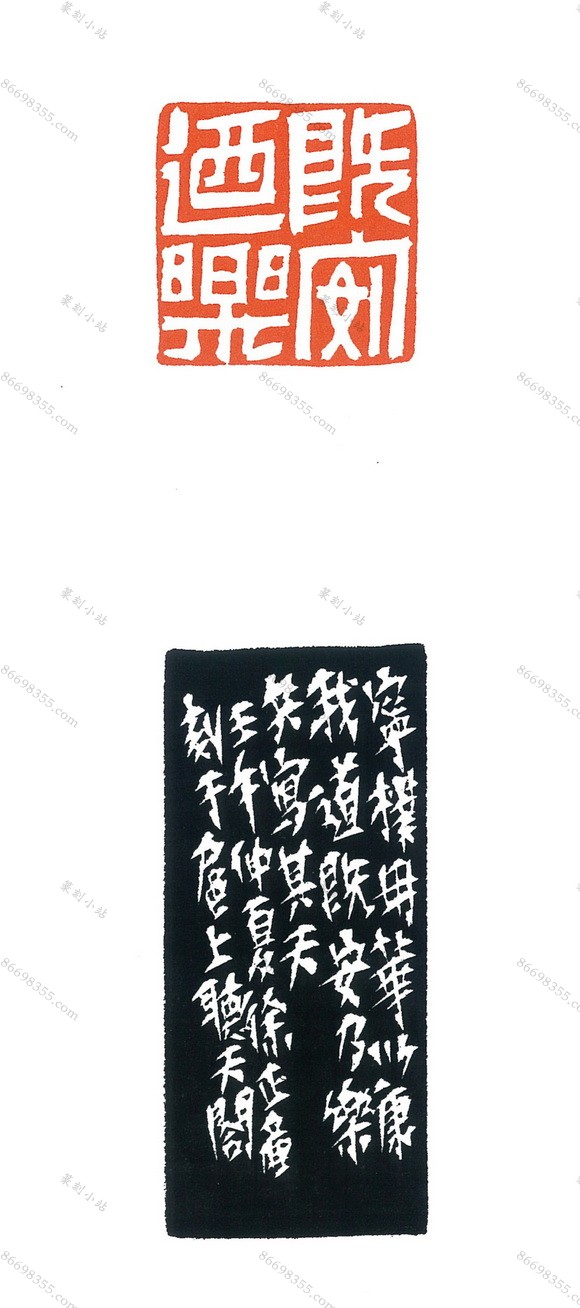 既安
迺樂
寧樸毋華以康
我道既安乃樂
寫其天
壬午仲夏徐正廉
刻于扈上聽天閣
篆刻小站
86698355.com